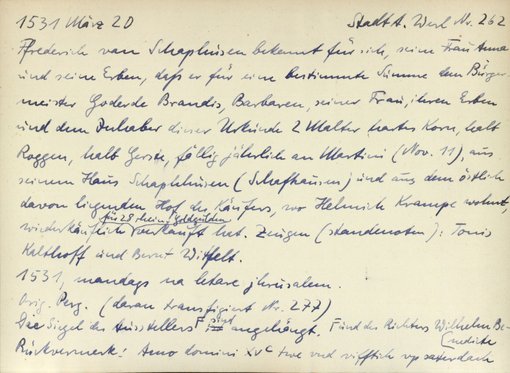 1531 März 20 Stadt A. Werl Nr. 262
Frederich van Schaphusen bekennt für sich, seine Frau Anna
und seine Erben, daß er für eine bestimmte Summe dem Bürger-
meister Goderde Brandis, Barbaren, seiner Frau, ihren Erben
und dem Inhaber dieser Urkunde 2 Malter hartes Korn, halb
Roggen, halb Gerste, fällig jährlich an Martini (Nov. 11), aus
seinem Haus Schaphüsen (Schafhausen) und aus dem östlich
davon liegenden Hof des Käufers, wo Helmich Krampe wohnt,
für 28 rhein. Goldgulden
wiederkäuflich verkauft hat. Zeugen (standenoten): Tonis
Kalthoff und Bernt Wittfelt.
1531, mandags na letare jherusalem.
Orig. Perg. (daran transfigiert Nr. 277)
Das Siegel des Ausstellers F sind angehängt. F und des Richters Wilhelm Be-
nndicte
Rückvermerk: Anno domini XVc twe und vifftich up saterdach